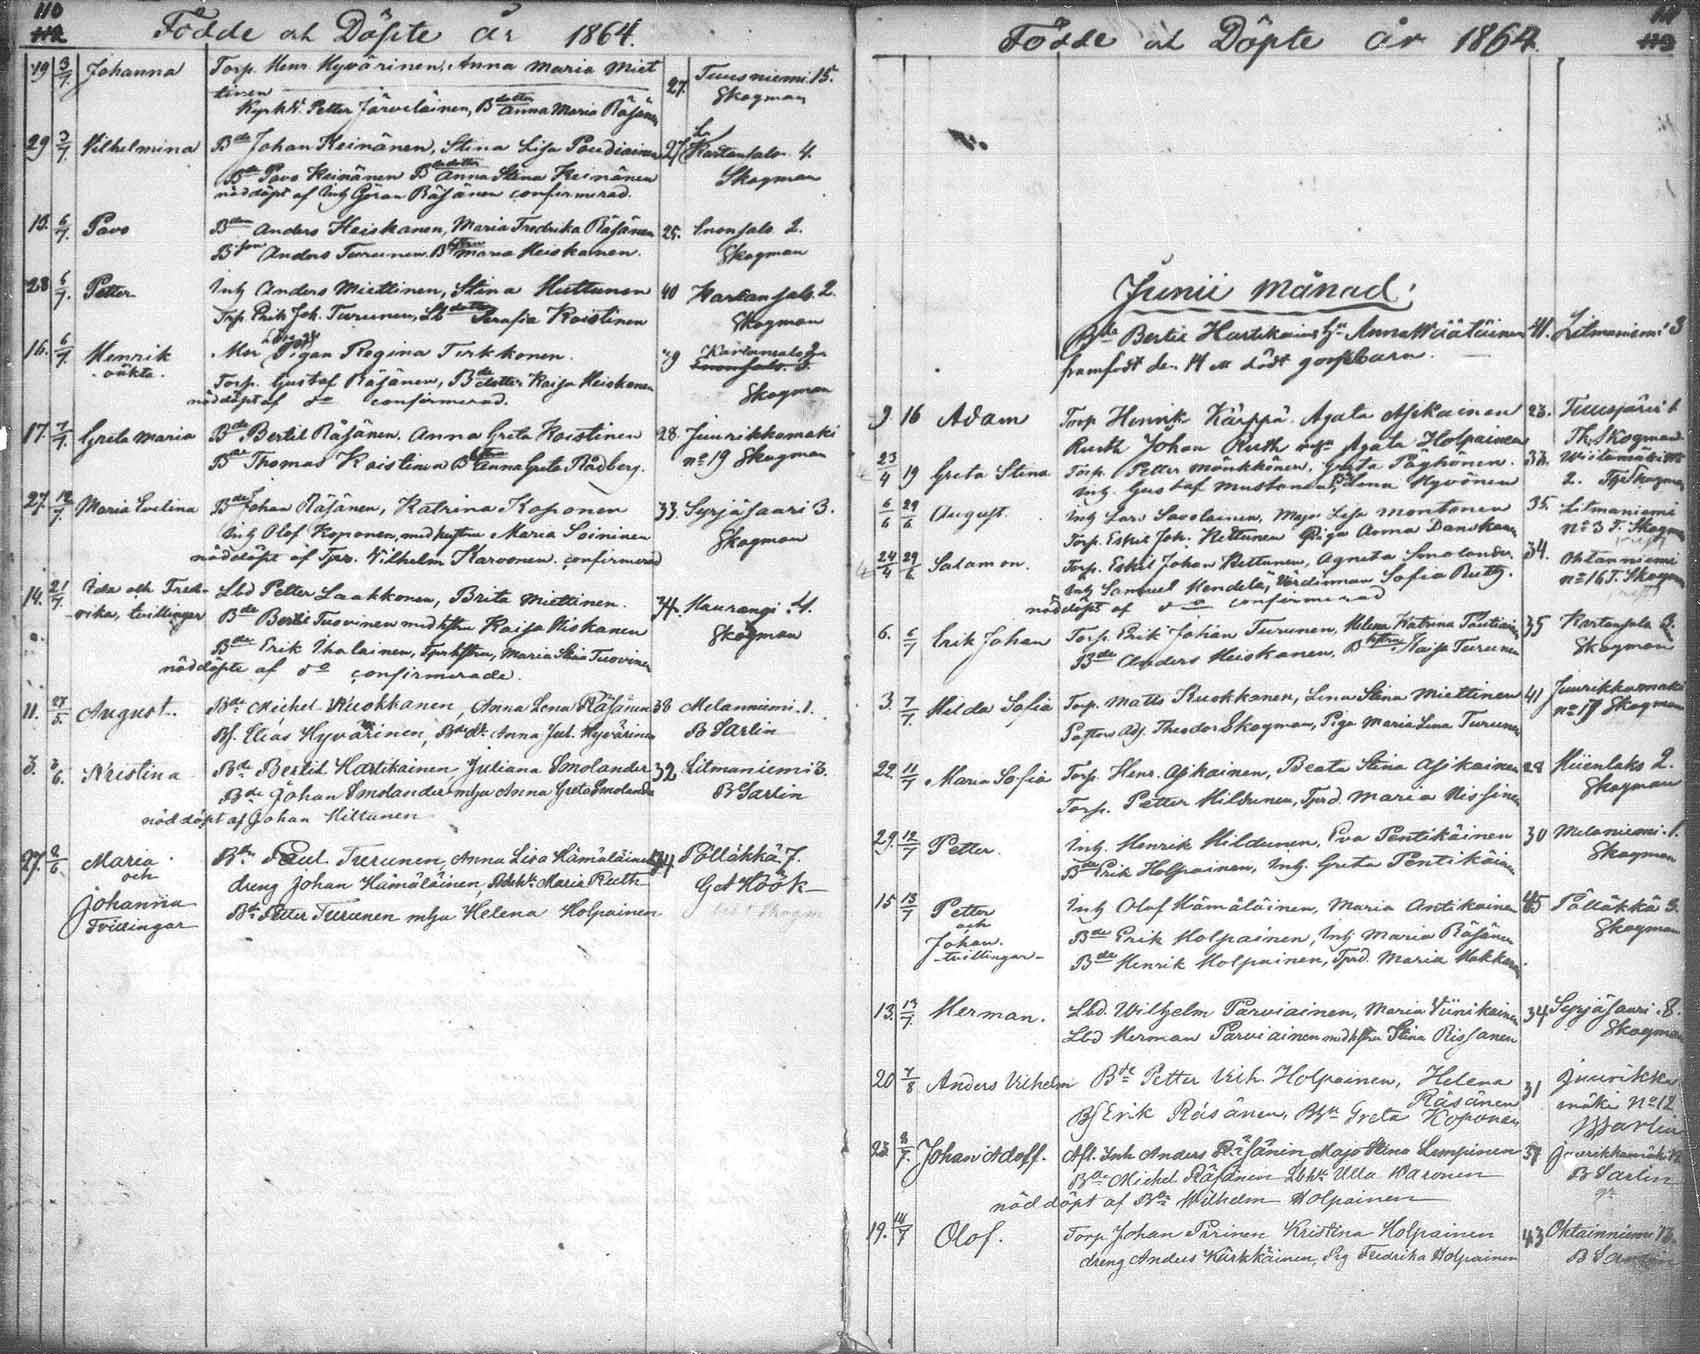 110
112
Födde och Döpte år 1864.
19 3/7 Johanna Torp. Henr Hyvärinen, Anna Maria Miet
tinen 27. Tuusniemi 15.
Petter Järveläinen, B dotter Anna Maria Räsänen Skogman
29 3/7 Vilhelmina Bde Johan Keinänen, Stina Lisa Poudiainen 27 Kartansalo 4.
Bde Pavo Keinänen Bdedotter Anna Stina Keinänen Skogman
nöddöpt af Inh Göran Räsänen confirmerad.
13. 6/7. Pavo Bden Anders Heiskanen, Maria Fredrika Räsänen 25. Enonsalo 2.
Bson Anders Turunen. B Maria Heiskanen. Skogman
28 6/7. Petter Inh Anders Miettinen, Stina Huttunen 40 Kartansalo 2.
Trp. Erik Joh. Turunen, Lbdotter Serafia Koistinen Skogman
16. 6/7 Henrik Mor Pigan Regina Tirkkonen. 29 Kartansalo 2
oäkta. Enonsalo 3
Torp. Gustaf Räsänen, Bdedotter Kaisa Heiskanen Skogman
nöddöpt af do confirmerad.
17. 7/7. Greta Maria Bde Bertil Räsänen. Anna Greta Koistinen 28. Juurikkamäki
Bde Thomas Koistinen B Anna Greta Rådberg. no 19 Skogman
27. 12/7. Maria Evelina Bde Johan Räsänen, Katrina Koponen 33. Syrjäsaari 3.
Inh Olof Koponen, med hustru Maria Soininen Skogman
nöddöpt af Tpr. Vilhelm Karvonen. confirmerad
14. 21/7 Ida och Fred- Lbd Petter Laakkonen, Brita Miettinen. 34. Haurangi 4.
rika, tvillingar Bde Bertil Tuovinen med hstru Kaisa Niskanen Skogman
Bde Erik Ihalainen, Tprhstru, Maria Stina Tuovinen
nöddöpte af do confirmerade.
11. 27/5. August. Bde Michel Kuokkanen, Anna Lena Räsänen 38 Melanniemi 1.
Bs. Elias Hyvärinen, Bdedr. Anna Jul. Hyvärinen B Sarlin
3. 3/6. Kristina Bde Bertil Hartikainen Juliana Smolander 32 Litmaniemi 3.
Bde Johan Smolander m hu Anna Greta Smolander B Sarlin
nöddöpt af Johan Hiltunen
27. 2/6. Maria Bde Paul Turunen, Anna Lisa Hämäläinen 34 Pölläkkä 7.
och dreng Johan Hämäläinen, Maria Ruth G A Höök
Johanna Bde Petter Turunen m hu Helena Holpainen
Tvillingar
111
113
Födde och Döpte år 1864.
Junii Månad.
Bde Bertil Hartikainen Hu Anna Väätäinen 41. Litmaniemi 3
framfödt den 14 ett dödt gossebarn.
9 16 Adam Torp Henrik Kärppä. Agata Asikainen 23. Tuusjärvi 6
Ruth Johan Ruth Agata Holpainen Th. Skogman
23/4 19 Greta Stina Torp. Petter Mönkkönen, Greta Päykönen. 32.
Inh. Gustaf Mustonen, Lena Hyvönen 2. Skogman
6/6 29/6 August. Inh Lars Savolainen, Maja Lisa Montonen 35. Litmaniemi
Torp. Eskil Joh. Kettunen Piga Anna Danskanen no 3 T. Skogman
24/4 29/6 Salamon. Torp. Eskil Johan Kettunen, Agneta Smolander 34. Ohtaniemi
Inh Samuel Hendelä, Värdinnan Sofia Ruth. no 16 T. Skogman
nöddöpt af do confirmerad
6. 6/7 Erik Johan Torp. Erik Johan Turunen, Helena Katrina Poutiainen 35 Kartansalo 2.
Bde Anders Heiskanen, B hstru Kaisa Turunen Skogman
3. 7/7 Hilda Sofia Torp. Matts Kuokkanen, Lena Stina Miettinen 41 Juurikkamäki
Pastors Adj. Theodor Skogman, Piga Maria Lena Turunen no 19 Skogman
22. 11/7 Maria Sofia Torp. Henr. Asikainen, Beata Stina Asikainen 28 Hiienlaks 2.
Torp. Petter Hildunen, Tprd. Maria Nissinen Skogman
29. 12/7 Petter. Inh. Henrik Hildunen, Eva Pentikäinen 30 Melaniemi 1.
Bde Erik Holpainen, Inh. Greta Pentikäinen Skogman
15 13/7 Petter Inh Olof Hämäläinen, Maria Antikainen 45 Pölläkkä 3.
och Bde Erik Holpainen, Inh Maria Räsänen Skogman
Johan. Bde Henrik Holpainen, Tprd. Maria Makkonen.
-tvillingar-
13. 13/7. Herman. Lbd. Wilhelm Parviainen, Maria Viinikainen 34 Syrjäsaari 8.
Lbd Herman Parviainen med hstru Stina Rissanen Skogman
20 7/8 Anders Vilhelm Bde Petter Vilh. Holpainen, Helena 31 Juurikka
Räsänen mäki No 12
Bs Erik Räsänen, Greta Koponen B Sarlin
23 8/7. Johan Adolf. Afl. Inh Anders Räsänen Maja Stina Lempinen 37 Juurikkamäki 12
Bde Michel Räsänen Ulla Waronen B Sarlin
nöddöpt af Bde Wilhelm Holpainen
19. 14/7 Olof. Torp. Johan Pirinen Kristina Holpainen 43 Ohtainniemi 13.
dreng Anders Kärkkäinen, Pig Fredrika Holpainen B Sarlin